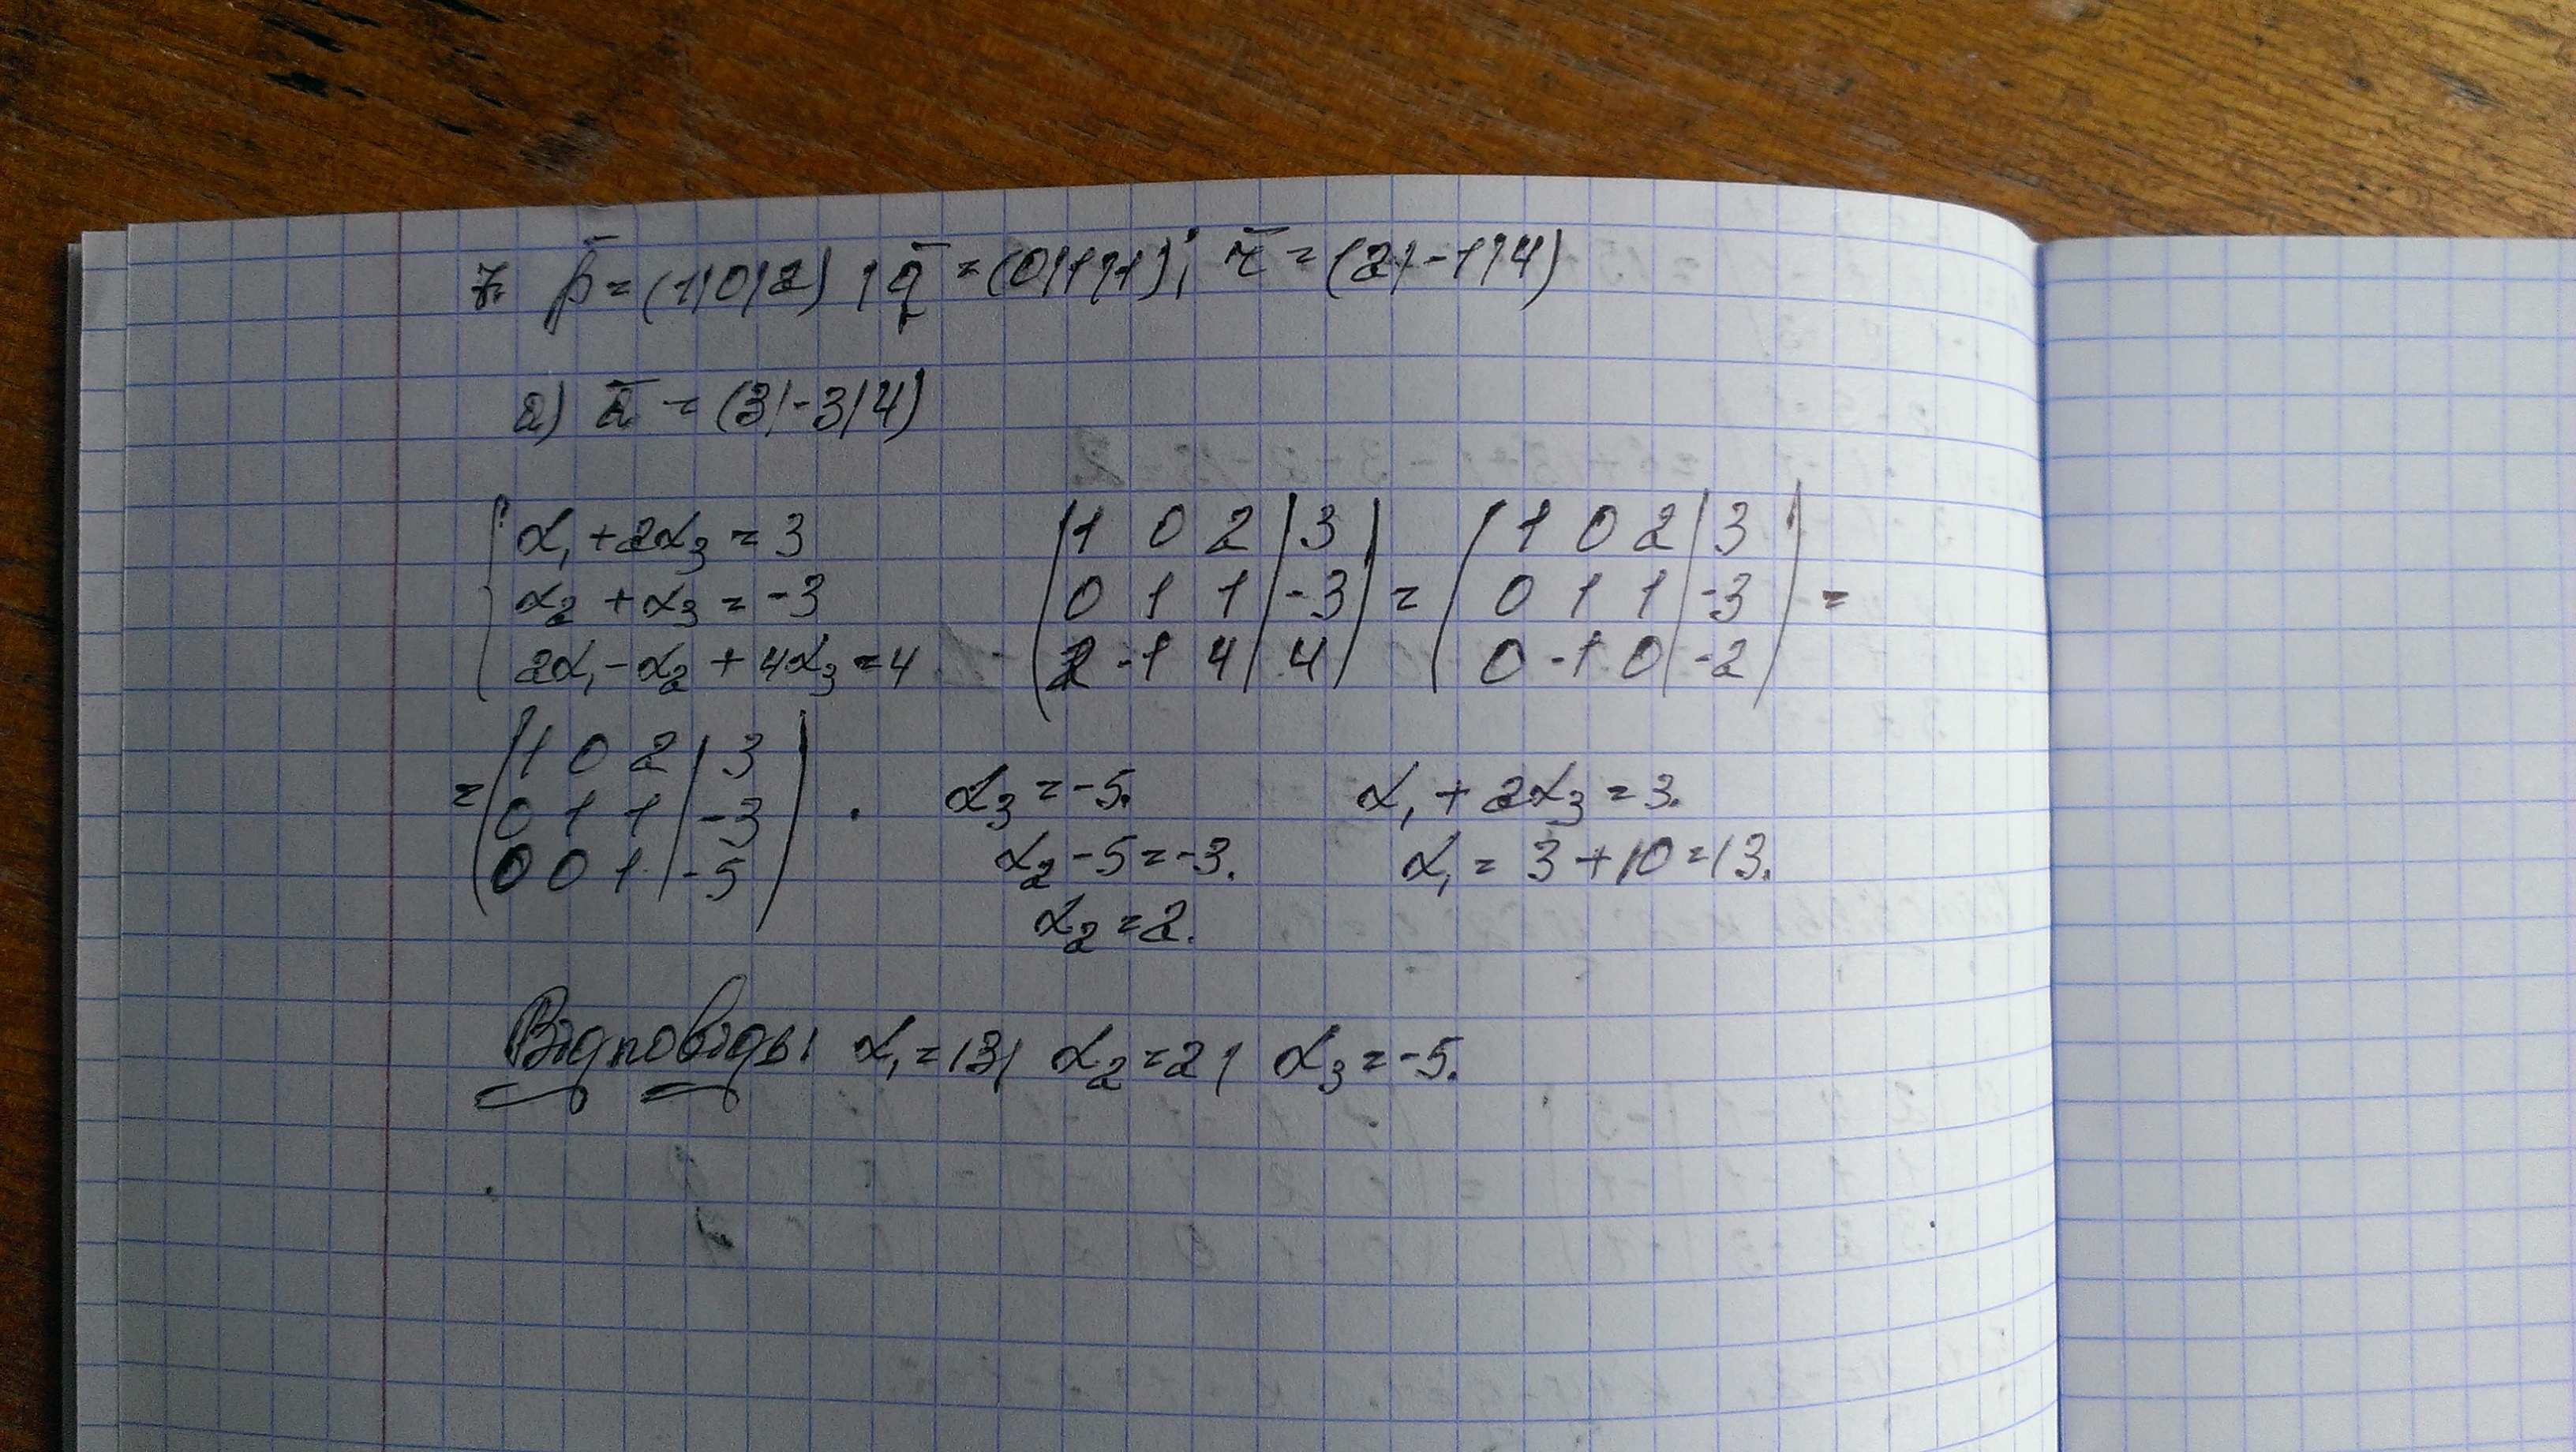 7. p̄ = (1; 0; 2), q̄ = (0; 1; 1); r̄ = (2; -1; 4)
а) ā = (3; -3; 4)
{ α₁ + 2α₃ = 3
α₂ + α₃ = -3
2α₁ - α₂ + 4α₃ = 4
( 1 0 2 | 3
0 1 1 | -3
2 -1 4 | 4 ) =
( 1 0 2 | 3
0 1 1 | -3
0 -1 0 | -2 ) =
= ( 1 0 2 | 3
0 1 1 | -3
0 0 1 | -5 ) .
α₃ = -5.
α₂ - 5 = -3.
α₂ = 2.
α₁ + 2α₃ = 3.
α₁ = 3 + 10 = 13.
Відповідь: α₁ = 13, α₂ = 2, α₃ = -5.